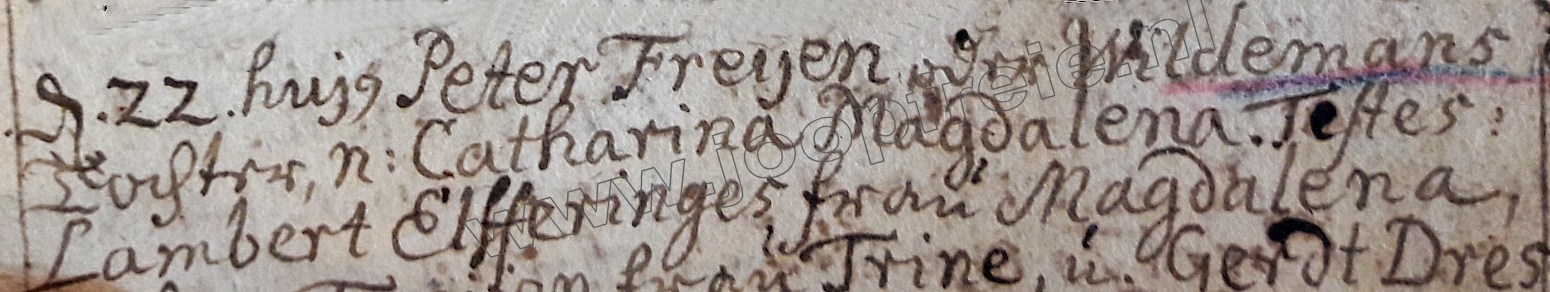 D. 22. hujs Peter Freyen oder Wildemans
Tochter, n: Catharina Magdalena. Testes:
Lambert Elfferinges frau Magdalena,
frau Trine, u. Gerdt Dres
www.jooptreie.nl